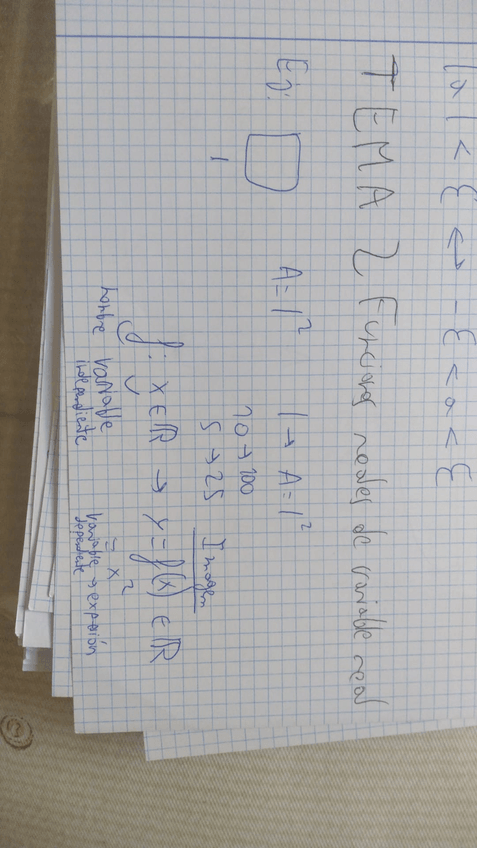 |a| < ε ↔ -ε < a < ε
TEMA 2 Funciones reales de variable real
Ej: A = l² l → A = l²
l 10 → 100
5 → 25 Imagen
f: x ∈ ℝ → y = f(x) ∈ ℝ
= x²
nombre variable independiente variable dependiente → expresión